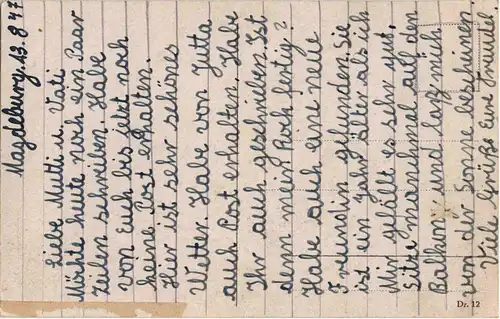 Magdeburg, 13.8.47
Liebe Mutti u. Vati
Möchte heute noch ein Paar
Zeilen schreiben. Habe
von Euch bis jetzt noch
keine Post erhalten.
Hier ist sehr schönes
Wetter. Habe von Jutta
auch Post erhalten. Habe
Ihr auch geschrieben. Ist
denn mein Rock fertig?
Habe auch eine neue
Freundin gefunden. Sie
ist ein Jahr älter als ich
Mir gefällt es sehr gut.
Sitze manchmal auf den
Balkon und laß mich
von der Sonne bescheinen.
Viele Grüße Eure Traudel
Dr. 12